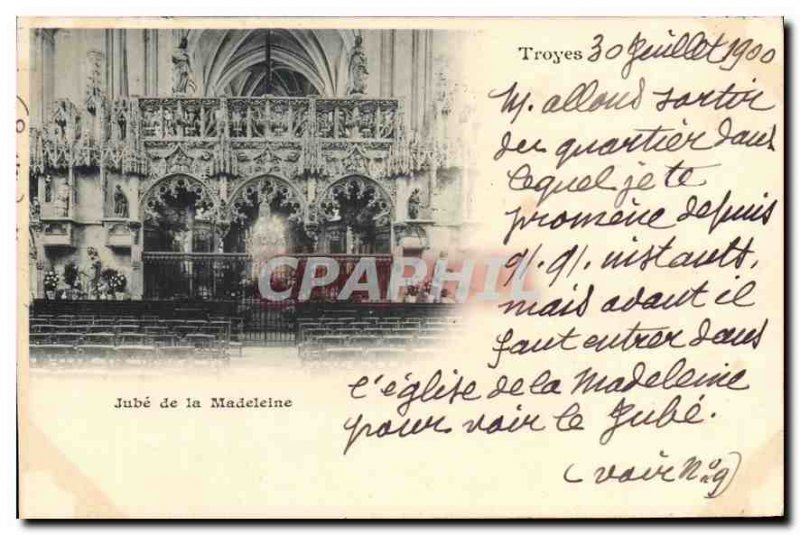 Troyes 30 Juillet 1900
N. allons sortir
du quartier dans
lequel je te
promène depuis
q/. q/. instants,
mais avant il
faut entrer dans
l'église de la Madeleine
pour voir le Jubé.
(voir No 9)
CPARHIL
Jubé de la Madeleine